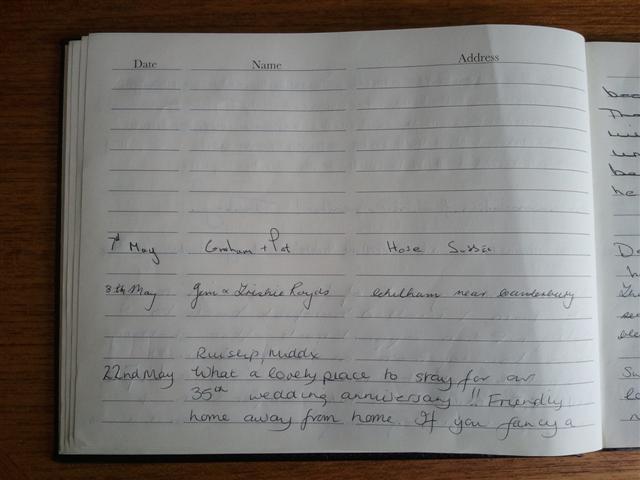 Date Name Address
7th May Graham + Pat Hove Sussex
May Jim & Trishie Royds Chilham near Canterbury
Ruislip, Middx
22nd May What a lovely place to stay for our
35th wedding anniversary !! Friendly
home away from home. If you fancy a